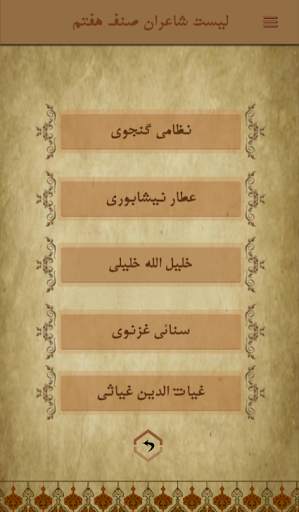 لیست شاعران صنف هفتم
نظامی گنجوی
عطار نیشابوری
خلیل الله خلیلی
سنائی غزنوی
غیاث الدین غیاثی